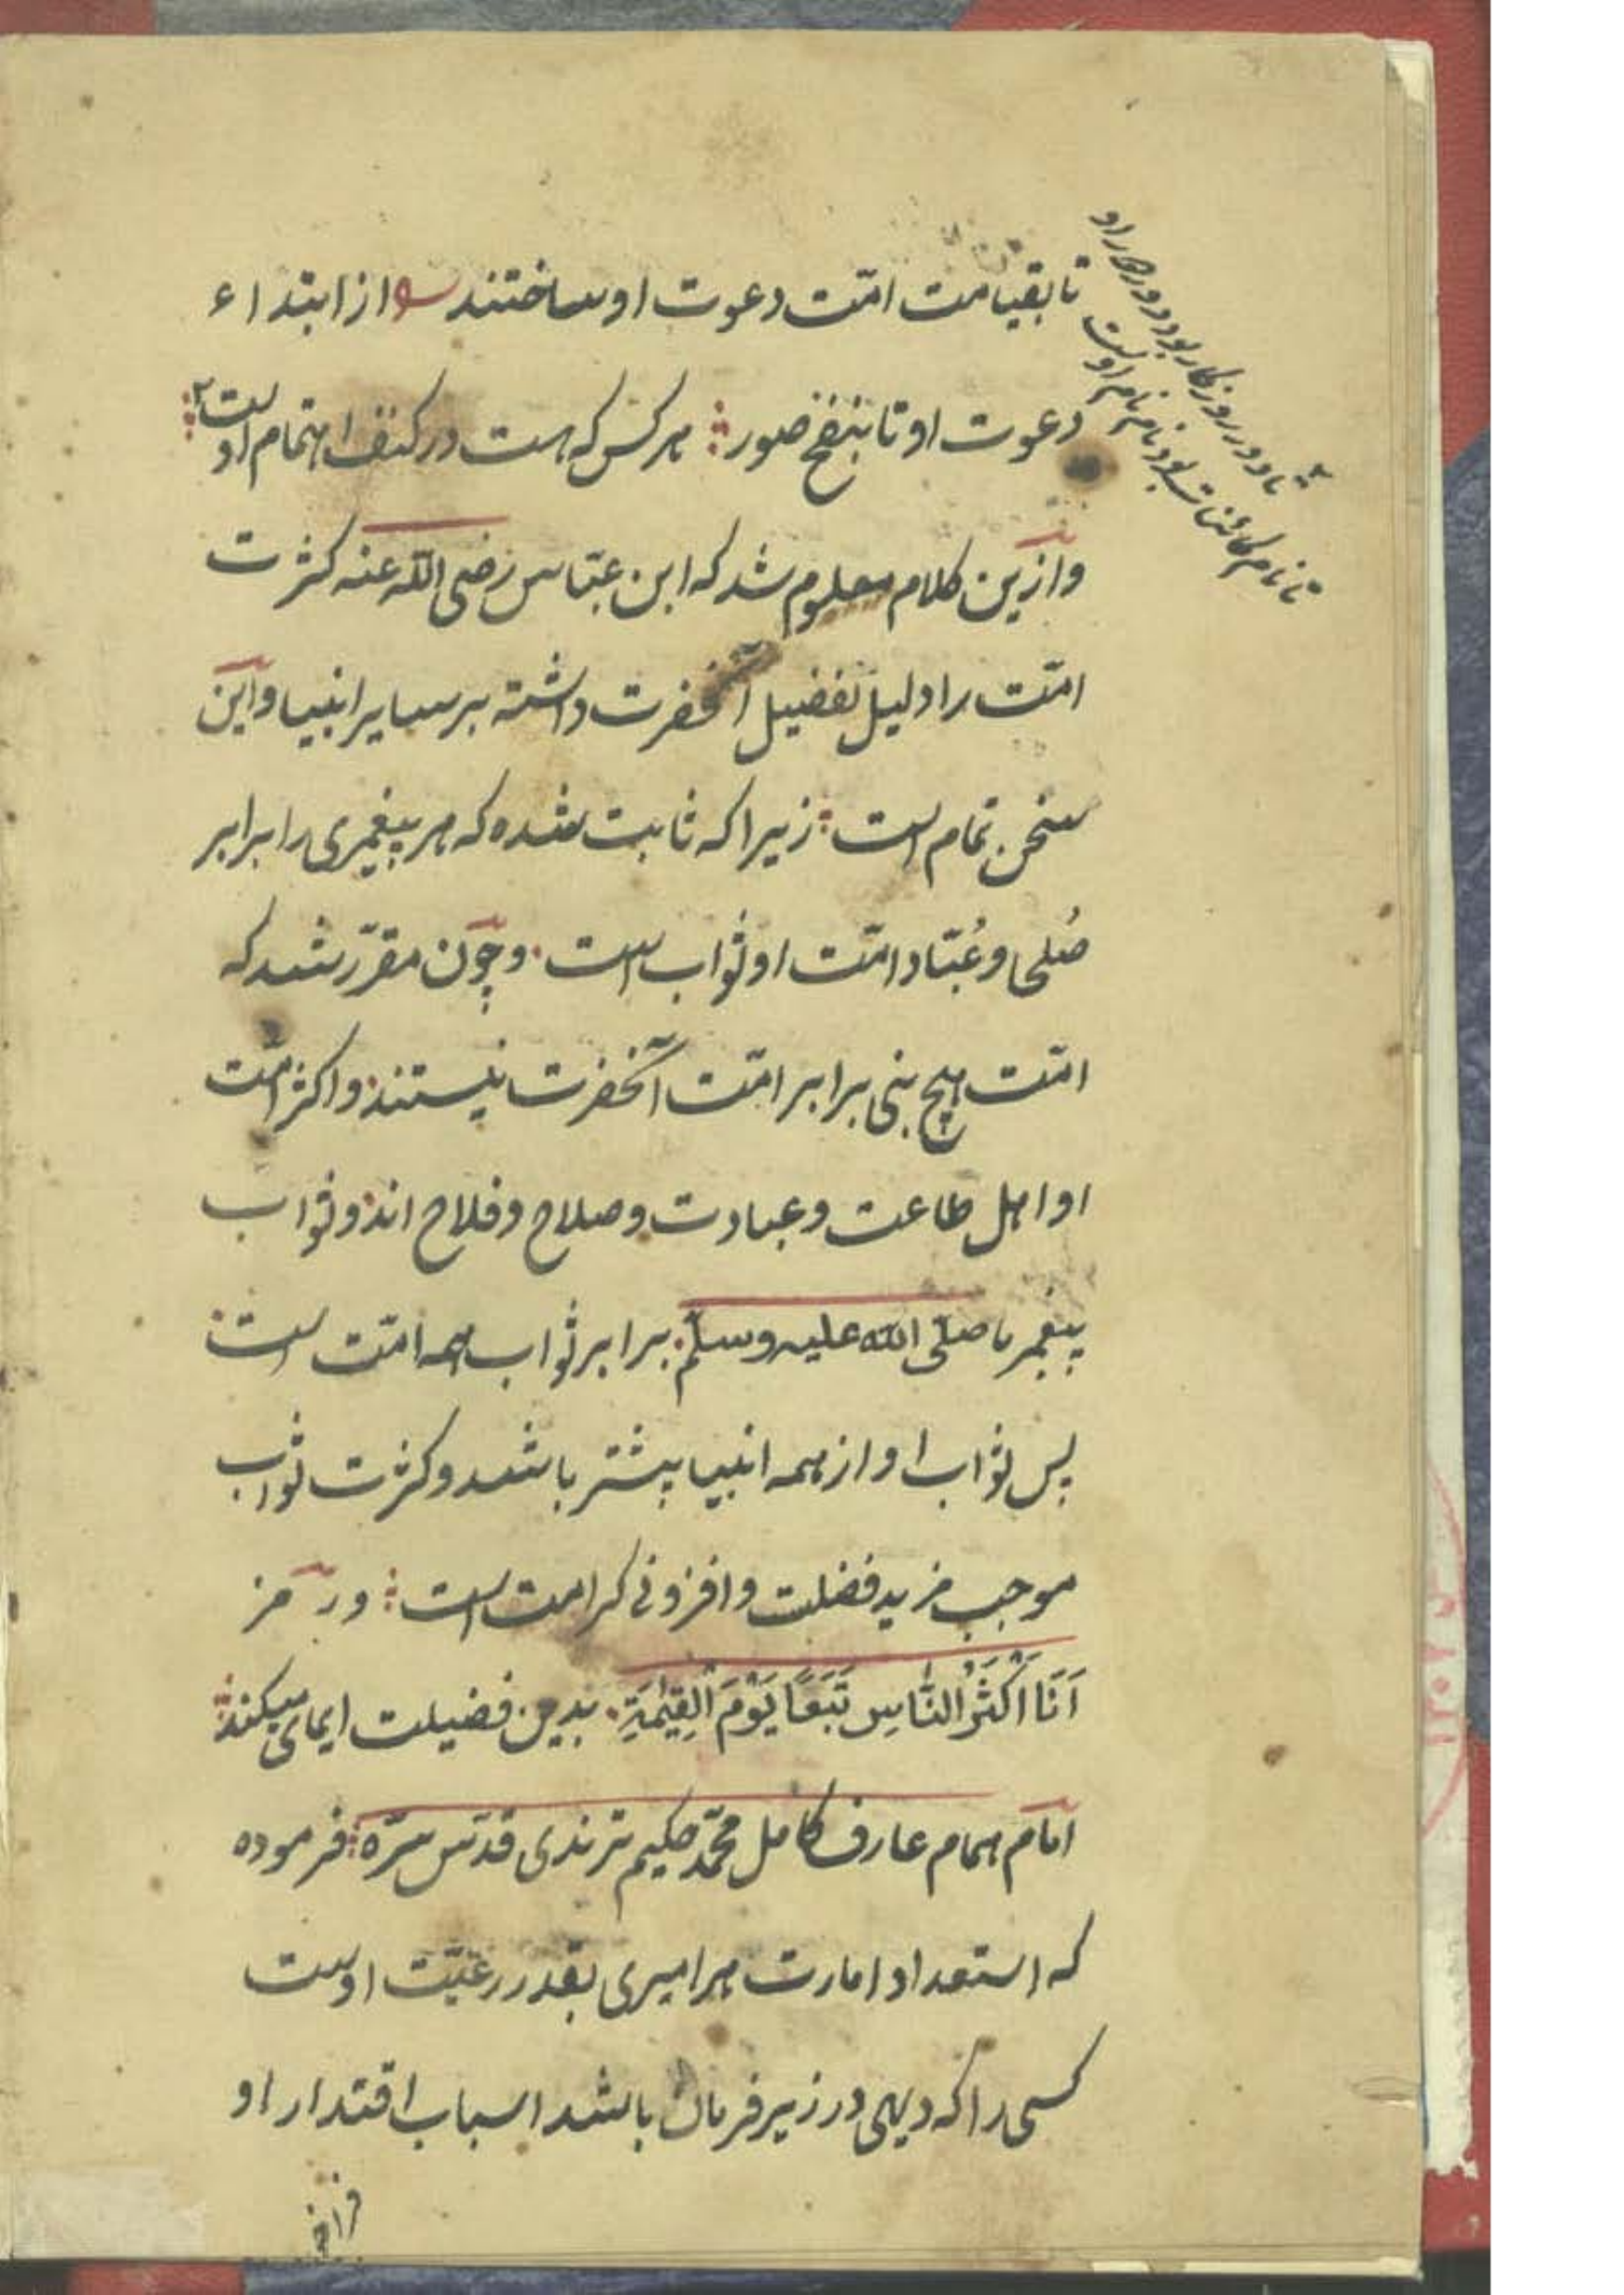 تا بقیامت امّت دعوت او ساختند از ابتداء
دعوت او تا بنفخ صور هر کس که هست در کنف اهتمام اوست
وازین کلام معلوم شد که ابن عبّاس رضی الله عنه کثرت
امّت را دلیل تفضیل آنحضرت داشته بر سایر انبیا و این
سخن تمام است زیرا که ثابت شده که هر پیغمبری را برابر
صُلحی و عُبّاد امّت او ثواب است و چون مقرّر شد که
امّت هیچ نبی برابر امّت آنحضرت نیستند و اکثر امّت
او اهل طاعت و عبادت و صلاح و فلاح اند و ثواب
پیغمبر ما صلّی الله علیه وسلّم برابر ثواب همه امّت است
پس ثواب او از همه انبیا بیشتر باشد و کثرت ثواب
موجب مزید فضلیت و افزونی کرامت است و رمز
اَنَا اَکْثَرُ النَّاسِ تَبَعًا یَوْمَ الْقِیٰمَةِ بدین فضیلت ایمای میکند
امام همام عارف کامل محمّد حکیم ترمذی قدّس سرّه فرموده
که استعداد امارت هر امیری بقدر رعیّت اوست
کسی را که دیهی در زیر فرمان باشد اسباب اقتدار او
تا دور روزگار بود دور دور او
تا نام کائنات بود نام نام اوست